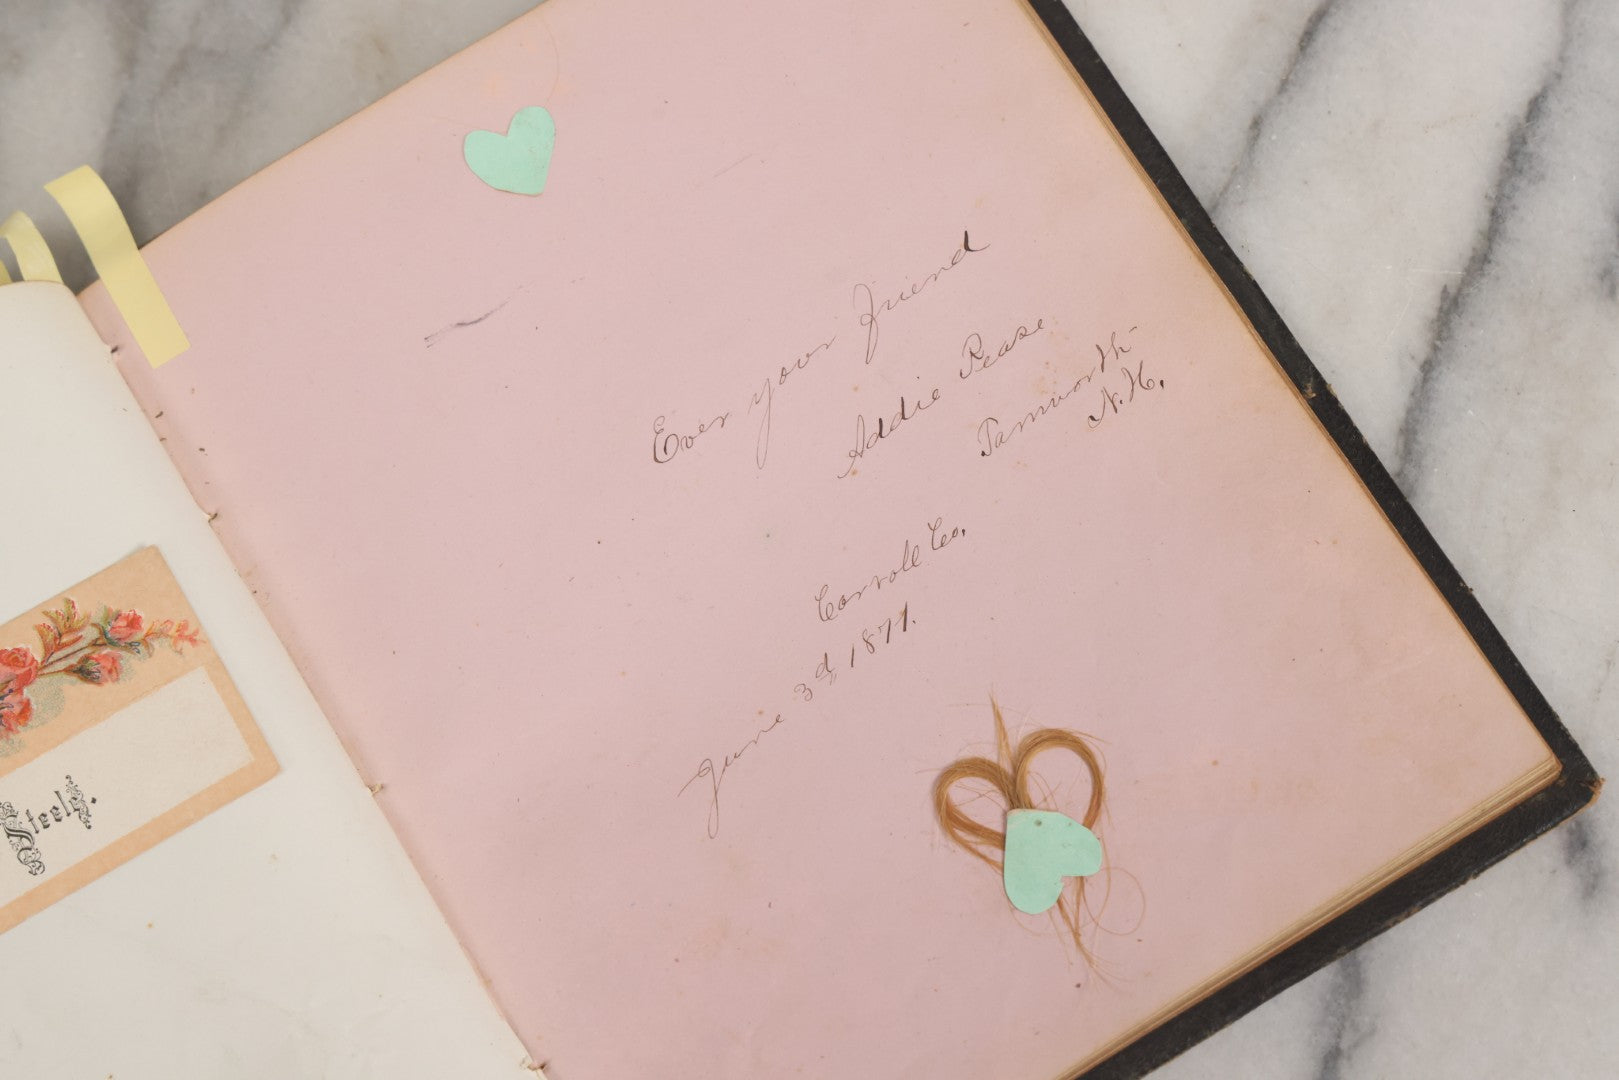 Ever your friend
Addie Pease
Tamworth
N.H.
Carroll Co.
June 3d 1877.
Steele.